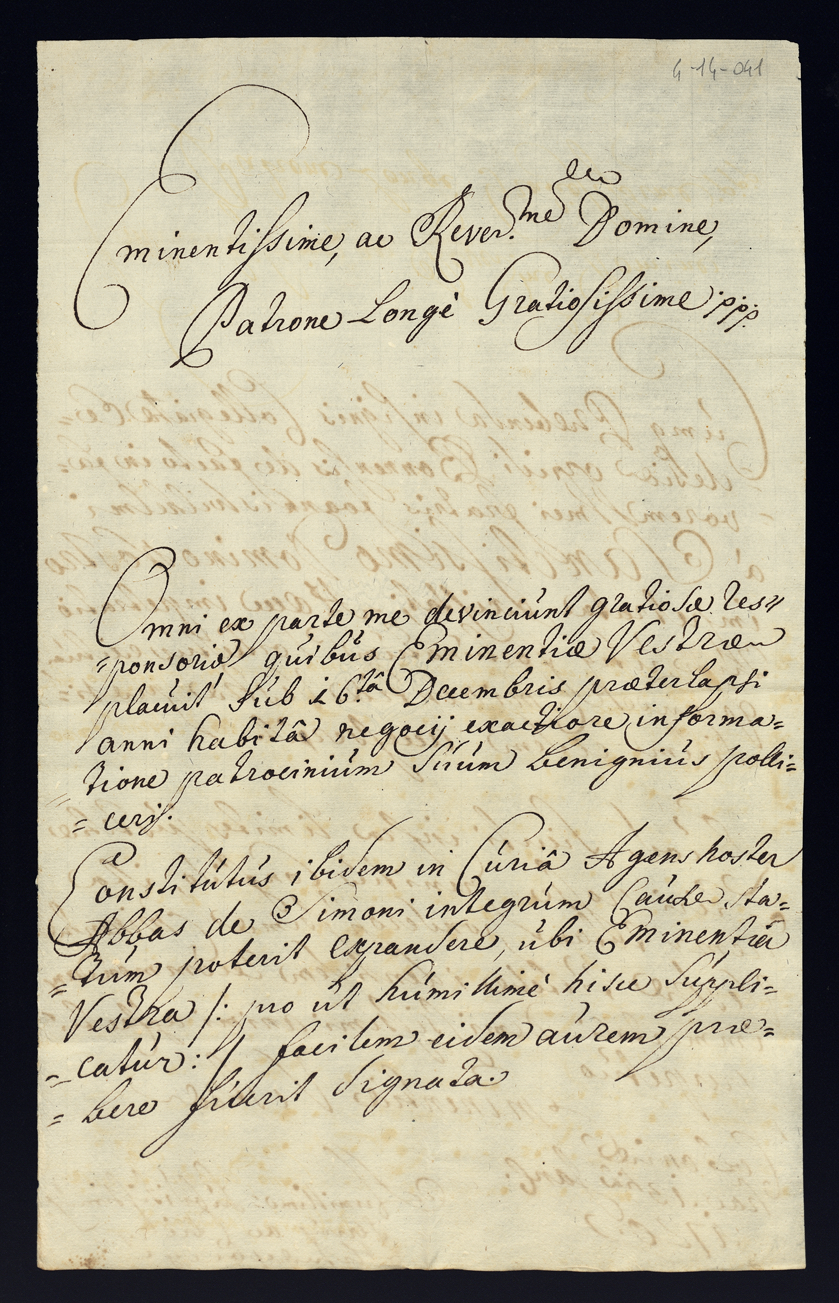 4-14-041
Eminentissime, ac Rever.me Domine,
Patrone Longè Gratiosissime ppp.
Omni ex parte me devinciunt gratiosæ res=
=ponsoriæ quibus Eminentiæ Vestræ
placuit sub 16.tâ Decembris præterlapsi
anni habitâ negocij exactiore informa=
=tione patrocinium suum benignius polli=
=cerj.
Constitutus ibidem in Curiâ Agens noster
Abbas de Simoni integrum Causæ sta=
=tum poterit expandere, ubi Eminentia
Vestra /: pro ut humillimè hisce suppli=
=catur :/ facilem eidem aurem præ=
=bere fuerit dignata.